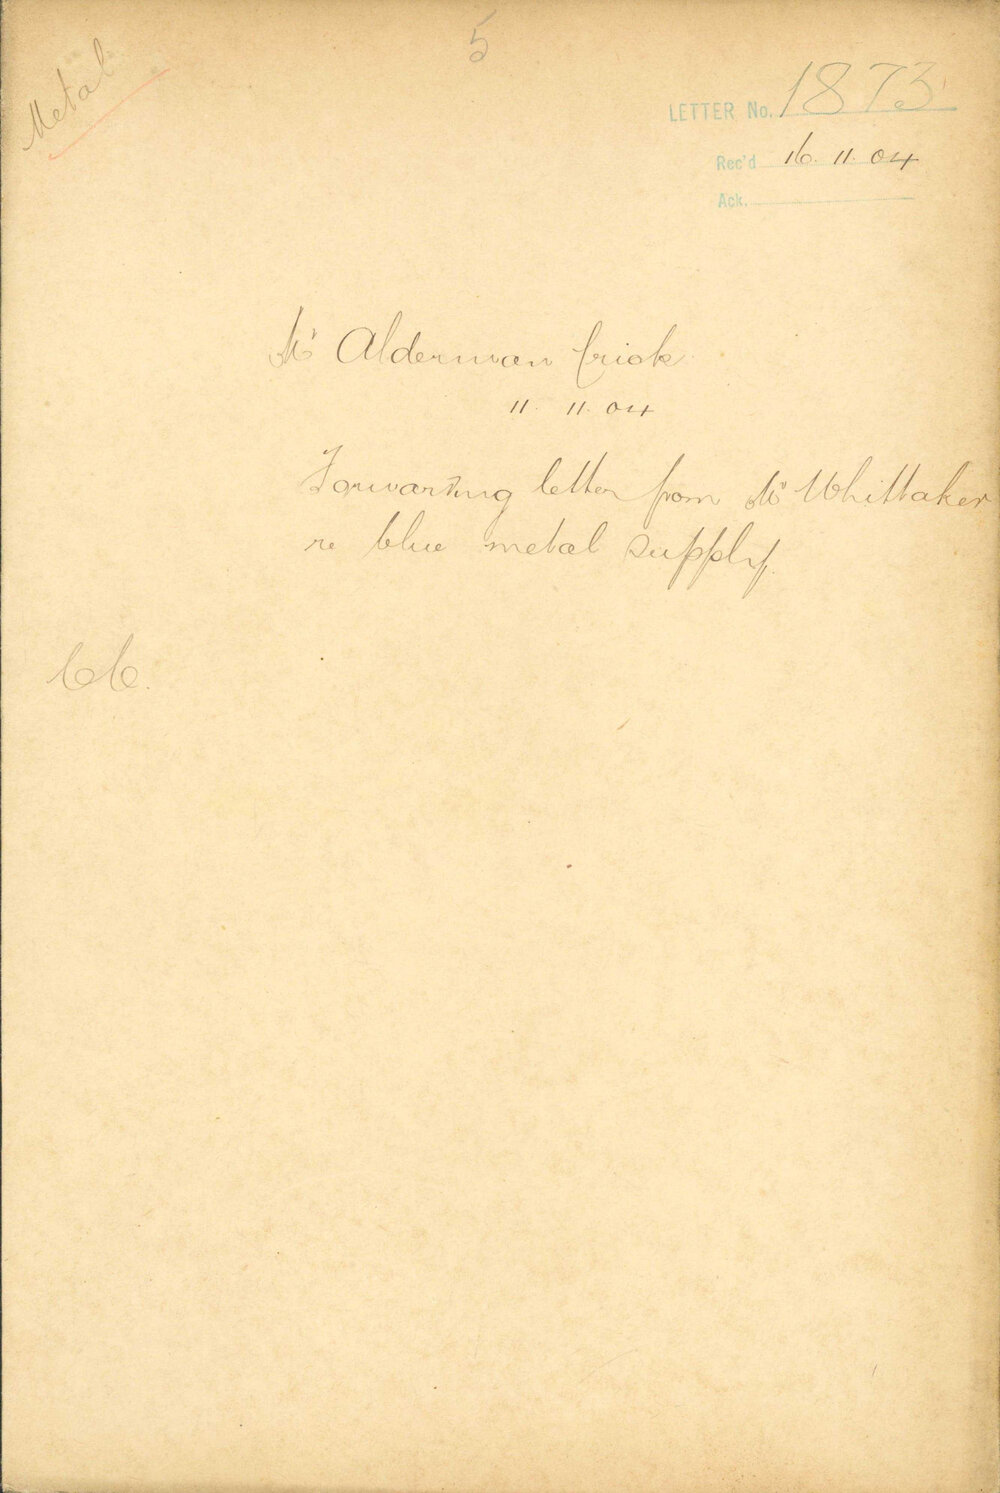 5
Metal
LETTER No. 1873
Rec'd 16. 11. 04
Ack.
Mr Alderman Crick
11. 11. 04
Forwarding letter from Mr Whittaker
re blue metal supply.